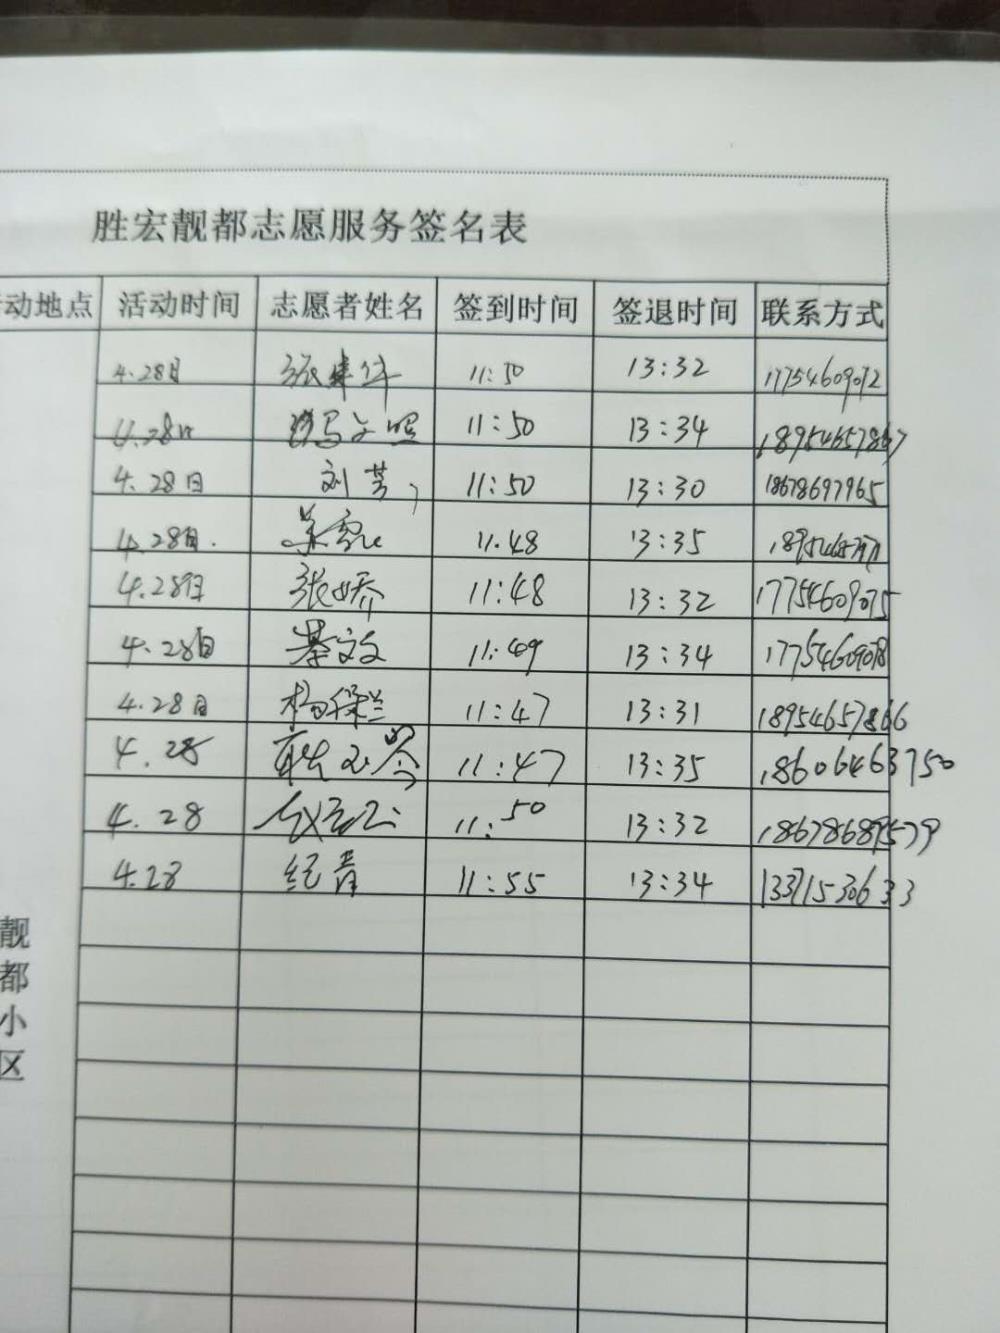 胜宏靓都志愿服务签名表
动地点 活动时间 志愿者姓名 签到时间 签退时间 联系方式
4.28日 11:50 13:32 17754609072
4.28日 11:50 13:34 18954657867
4.28日 刘芳 11:50 13:30 18678697965
4.28日. 11.48 13:35
4.28日 张娇 11:48 13:32 17754609075
4.28日 綦文文 11:49 13:34 17754609078
4.28日 杨保兰 11:47 13:31 18954657866
4.28 11:47 13:35 18606463750
4.28 11:50 13:32
4.28 纪青 11:55 13:34 13371530633
靓
都
小
区